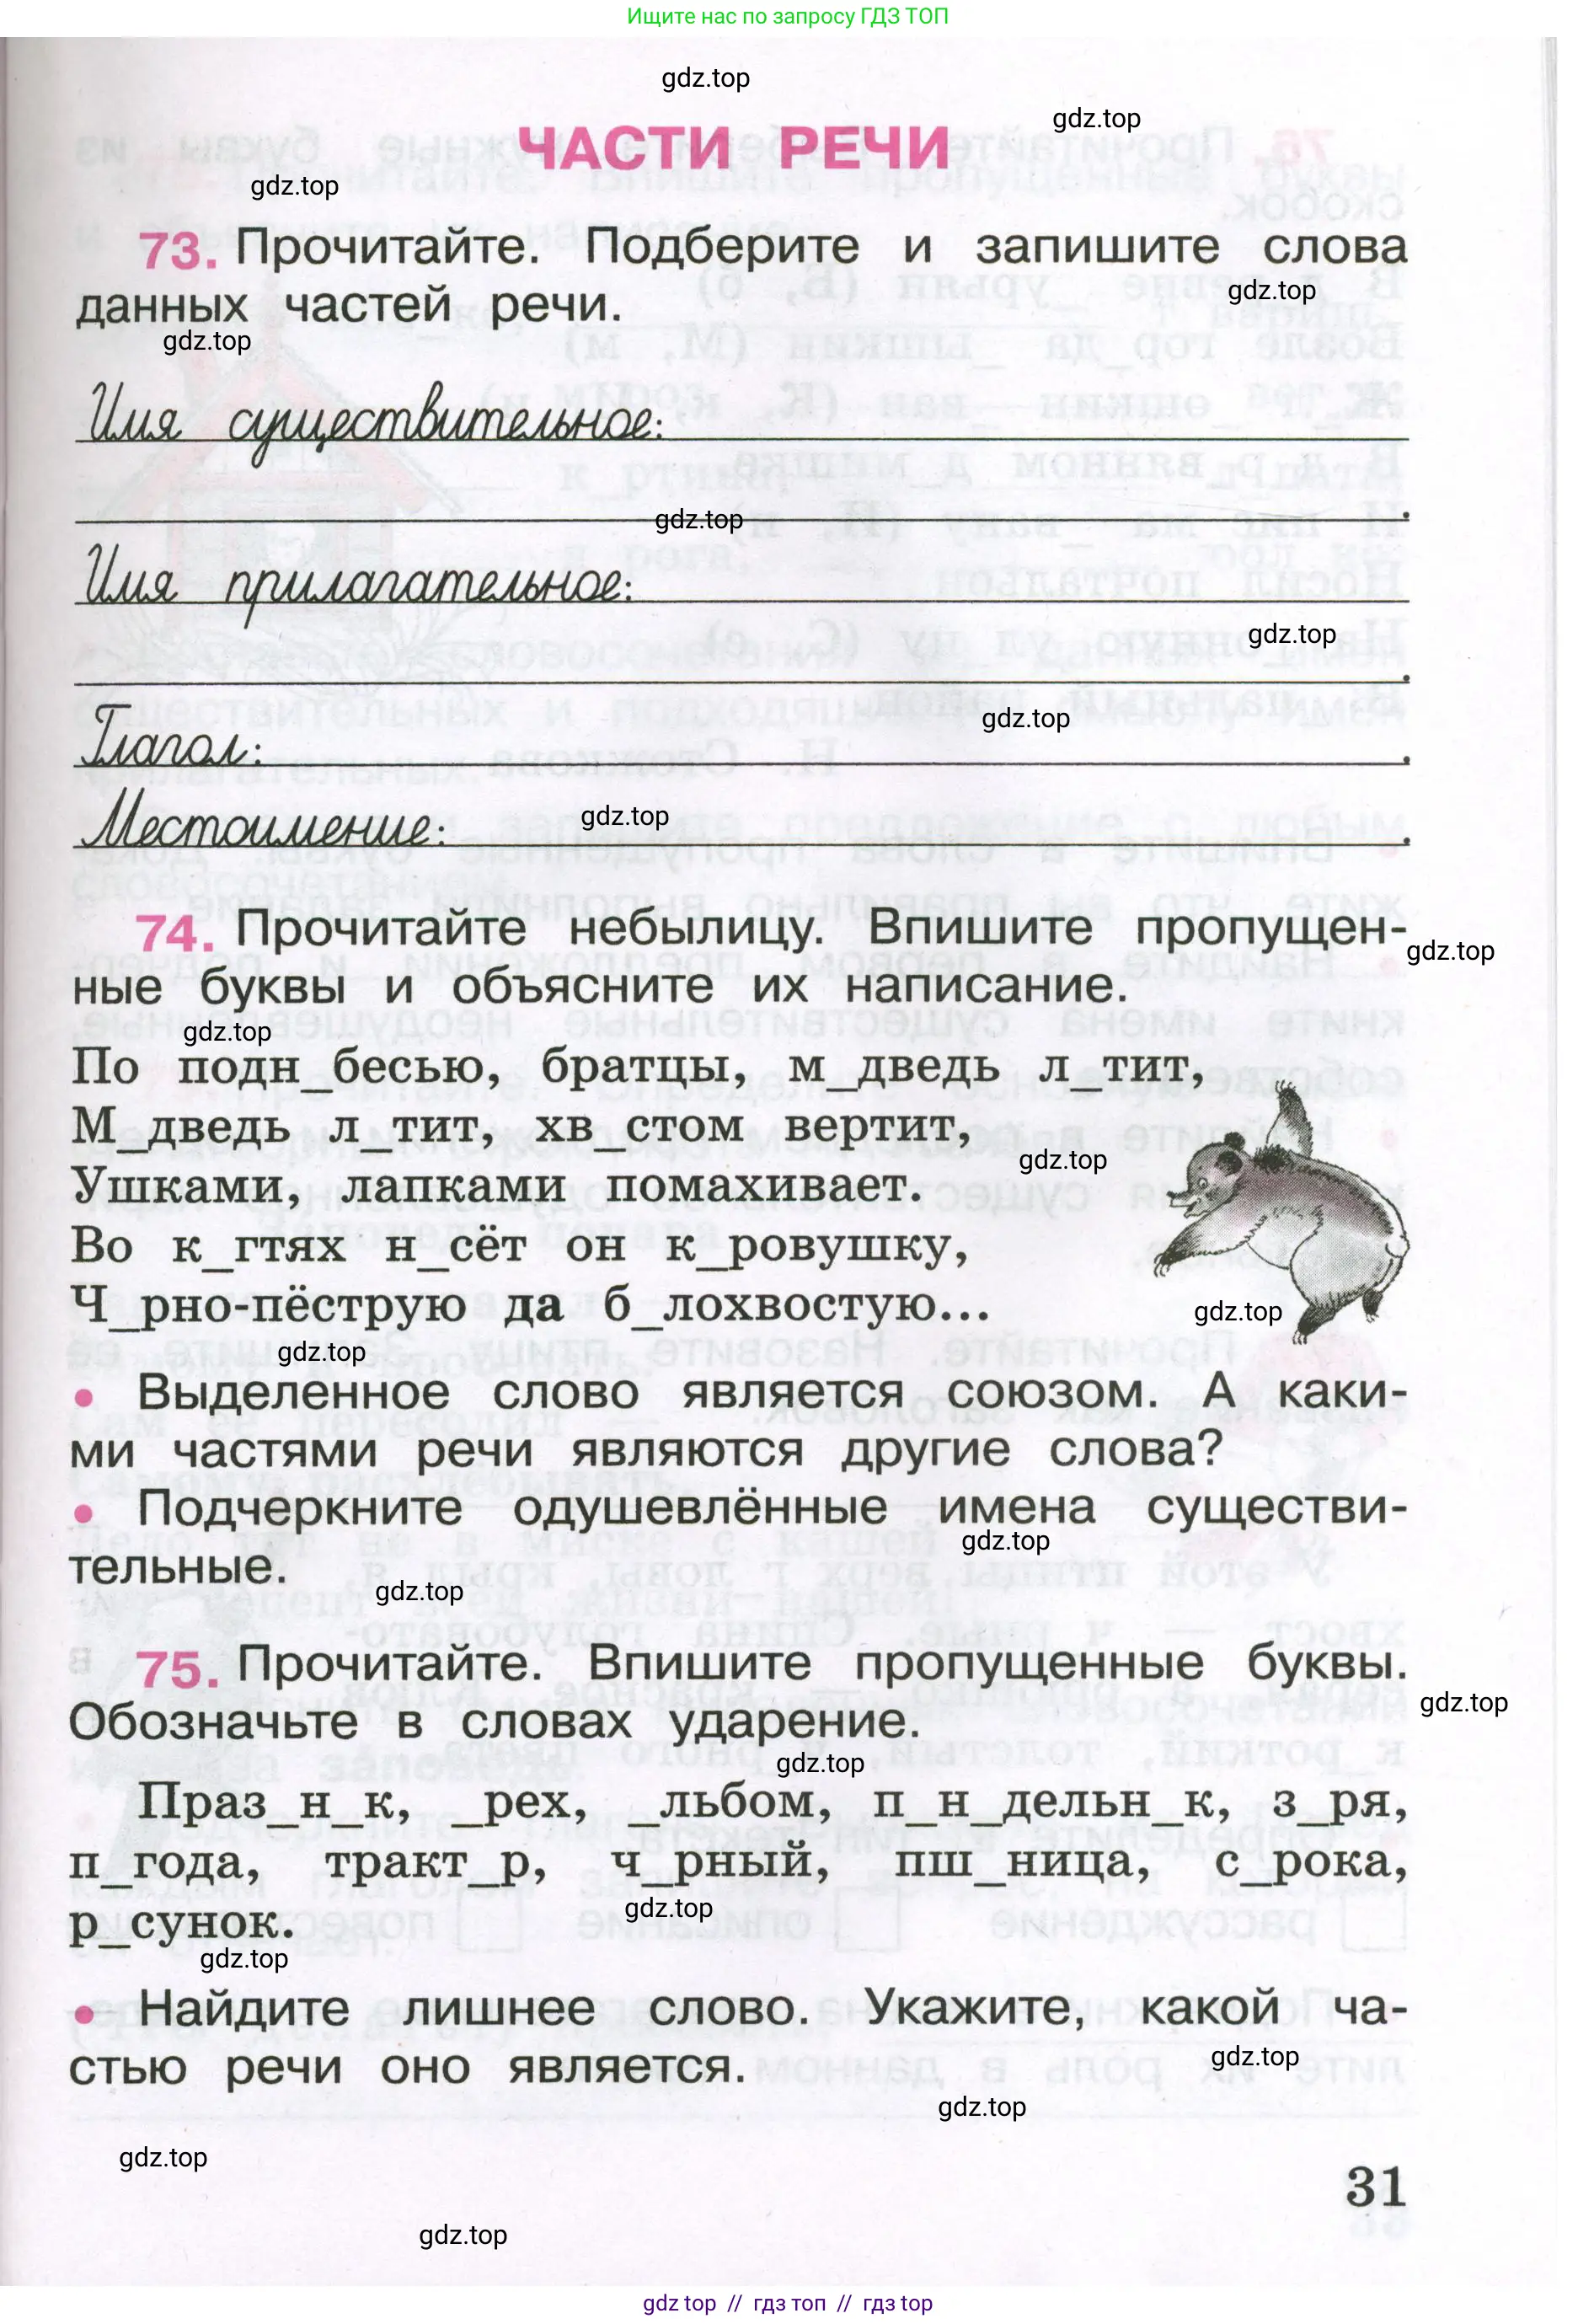 Ищите нас по запросу ГДЗ ТОП
gdz.top
gdz.top
ЧАСТИ РЕЧИ
gdz.top
73. Прочитайте. Подберите и запишите слова
gdz.top
данных частей речи.
gdz.top
Имя существительное:
gdz.top
.
Имя прилагательное:
gdz.top
.
gdz.top
Глагол: .
gdz.top
Местоимение: .
74. Прочитайте небылицу. Впишите пропущен-
gdz.top
ные буквы и объясните их написание.
gdz.top
По подн_бесью, братцы, м_дведь л_тит,
М_дведь л_тит, хв_стом вертит,
gdz.top
Ушками, лапками помахивает.
Во к_гтях н_сёт он к_ровушку,
Ч_рно-пёструю да б_лохвостую...
gdz.top
gdz.top
• Выделенное слово является союзом. А каки-
ми частями речи являются другие слова?
• Подчеркните одушевлённые имена существи-
gdz.top
тельные.
gdz.top
75. Прочитайте. Впишите пропущенные буквы.
gdz.top
Обозначьте в словах ударение.
gdz.top
Праз_н_к, _рех, _льбом, п_н_дельн_к, з_ря,
п_года, тракт_р, ч_рный, пш_ница, с_рока,
gdz.top
р_сунок.
gdz.top
• Найдите лишнее слово. Укажите, какой ча-
стью речи оно является.
gdz.top
gdz.top
gdz.top
31
gdz.top
gdz top // гдз топ // гдз top